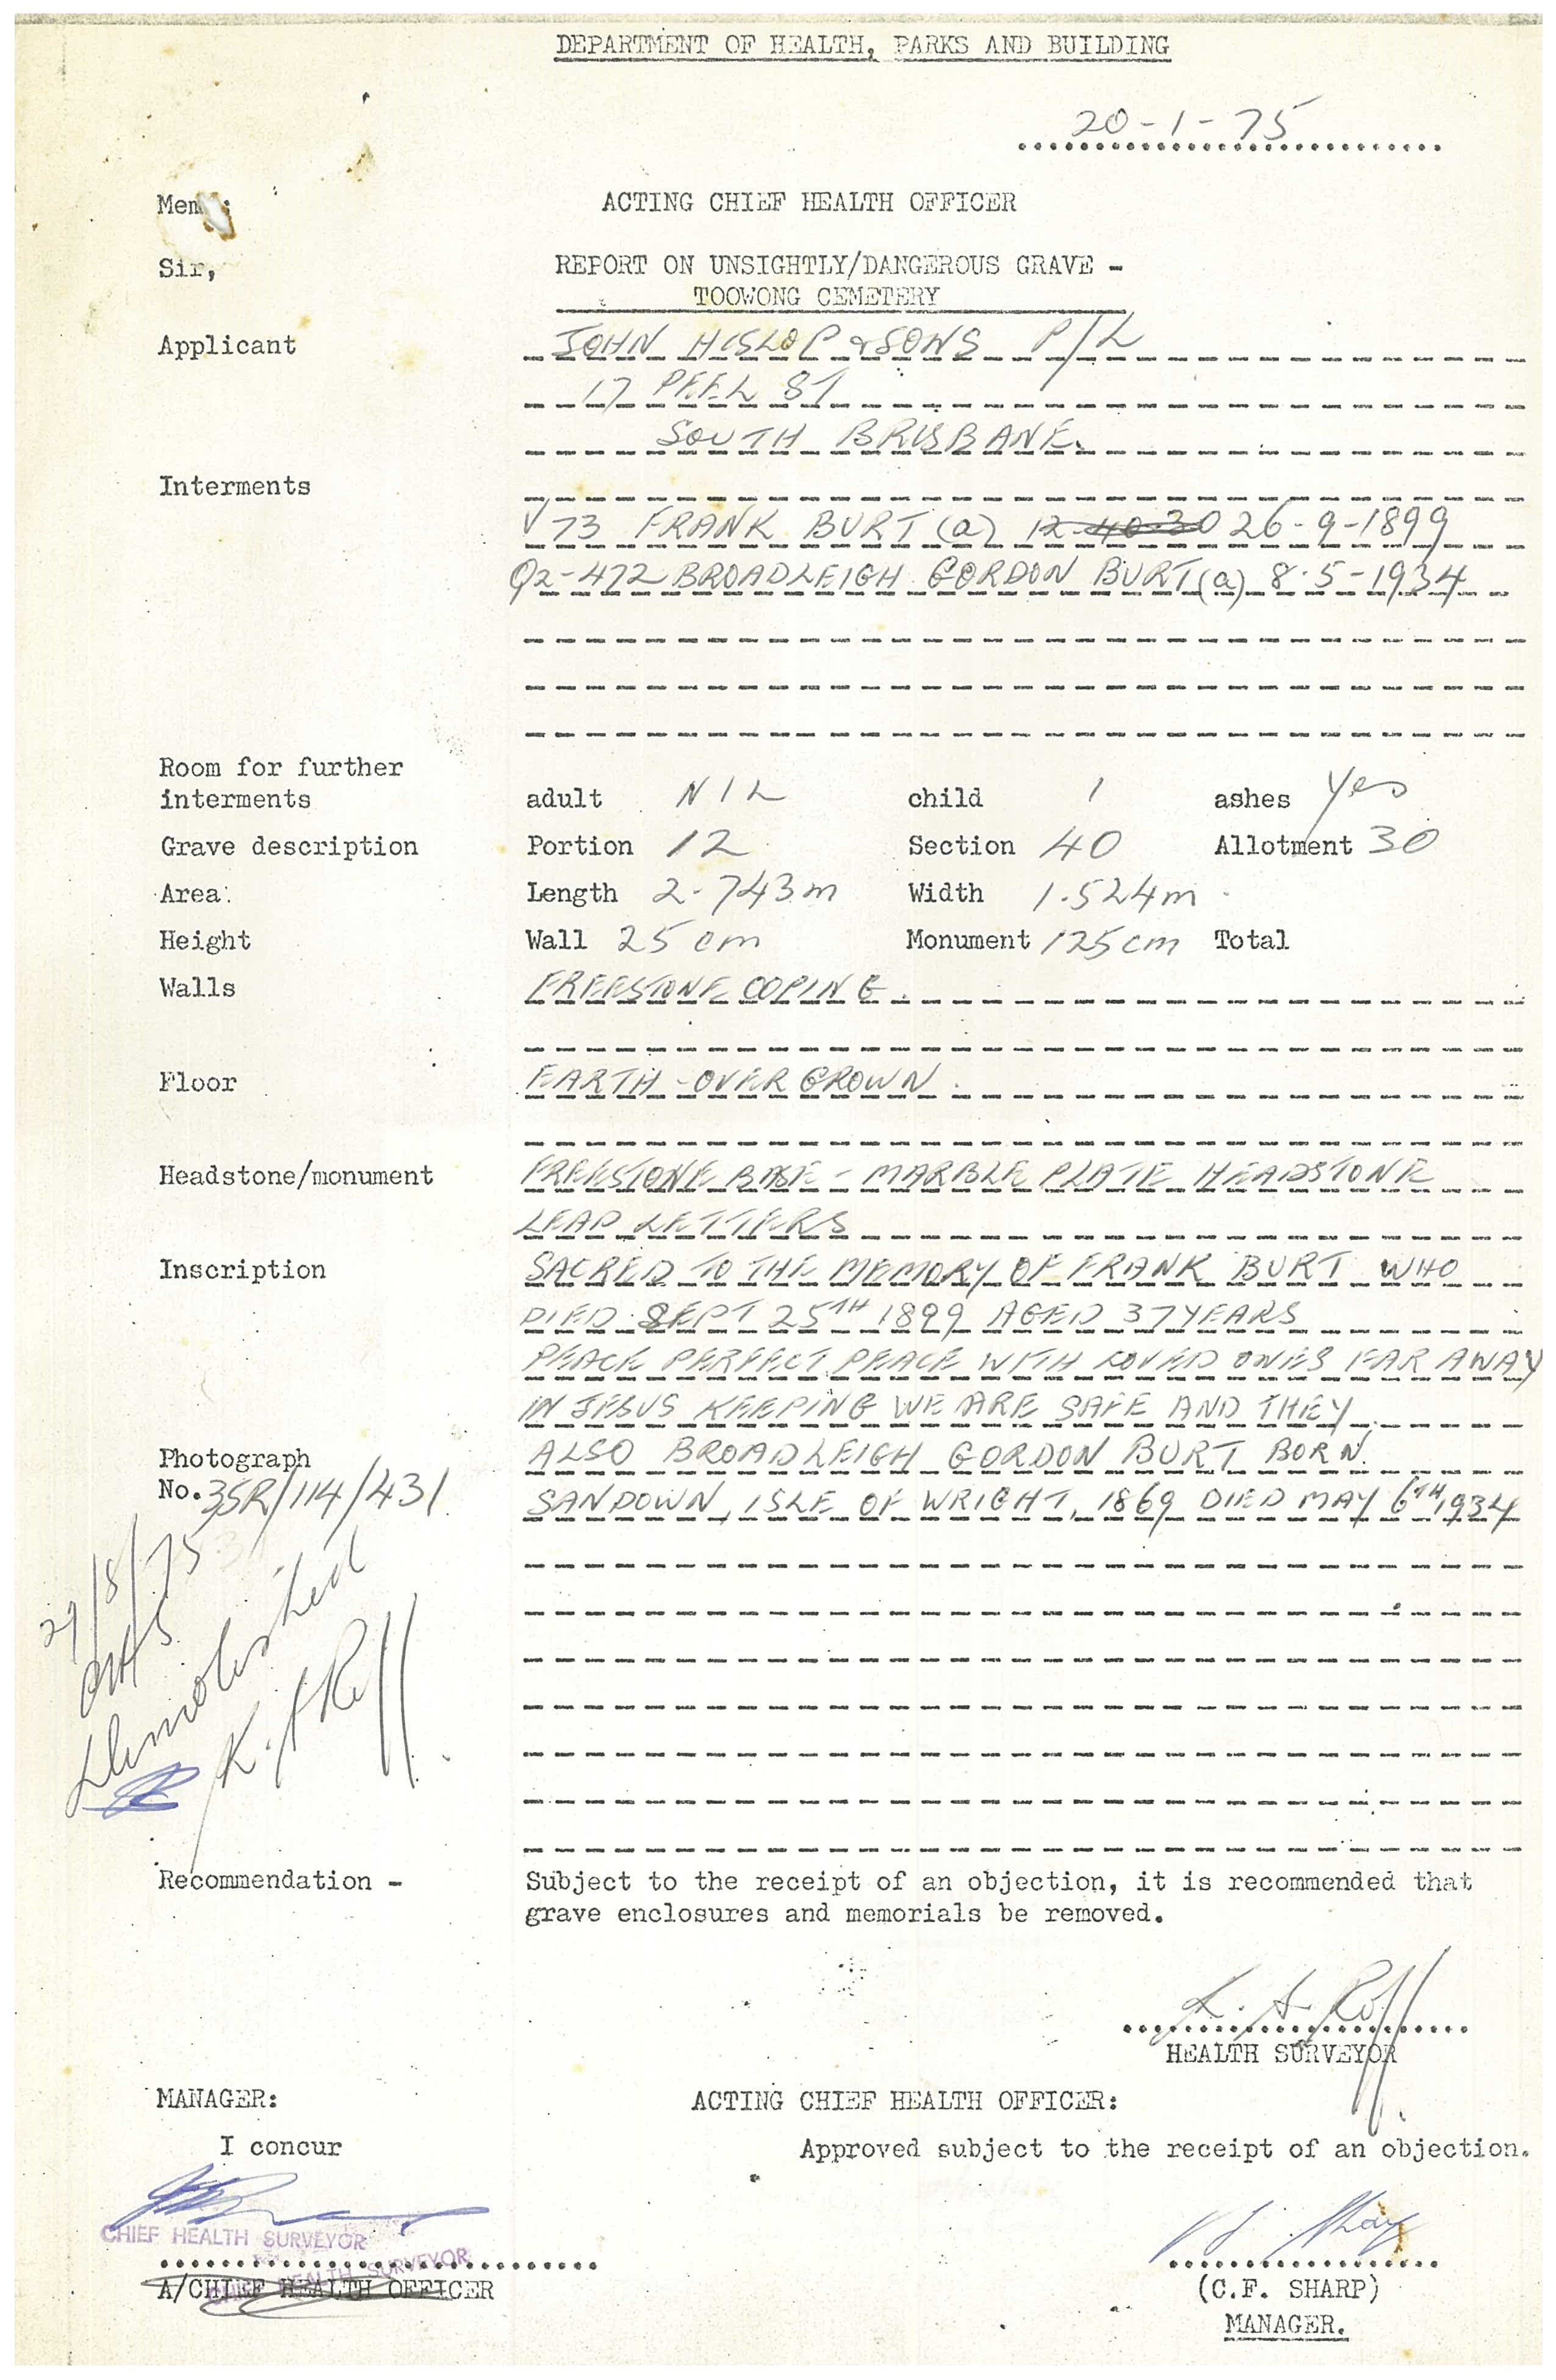 DEPARTMENT OF HEALTH, PARKS AND BUILDING
20-1-75
Mem :
ACTING CHIEF HEALTH OFFICER
Sir,
REPORT ON UNSIGHTLY/DANGEROUS GRAVE -
TOOWONG CEMETERY
Applicant JOHN HISLOP & SONS P/L
17 PEEL ST
SOUTH BRISBANE.
Interments
V73 FRANK BURT (a) 12-40-30 26-9-1899
Q2-472 BROADLEIGH GORDON BURT (a) 8.5-1934
Room for further
interments adult NIL child 1 ashes Yes
Grave description Portion 12 Section 40 Allotment 30
Area: Length 2.743m Width 1.524m
Height Wall 25cm Monument 125cm Total
Walls FREESTONE COPING.
Floor EARTH - OVERGROWN.
Headstone/monument FREESTONE BASE - MARBLE PLATE HEADSTONE
LEAD LETTERS
Inscription SACRED TO THE MEMORY OF FRANK BURT WHO
DIED SEPT 25TH 1899 AGED 37 YEARS
PEACE PERFECT PEACE WITH LOVED ONES FAR AWAY
IN JESUS KEEPING WE ARE SAFE AND THEY
Photograph ALSO BROADLEIGH GORDON BURT BORN
No. 35R/114/431 SANDOWN, ISLE OF WRIGHT, 1869 DIED MAY 6TH 1934
29/8/75
Demolished
K. A Roff
Recommendation - Subject to the receipt of an objection, it is recommended that
grave enclosures and memorials be removed.
K. A. Roff
HEALTH SURVEYOR
MANAGER: ACTING CHIEF HEALTH OFFICER:
I concur Approved subject to the receipt of an objection.
CHIEF HEALTH SURVEYOR
HEALTH SURVEYOR
A/CHIEF HEALTH OFFICER
(C.F. SHARP)
MANAGER.